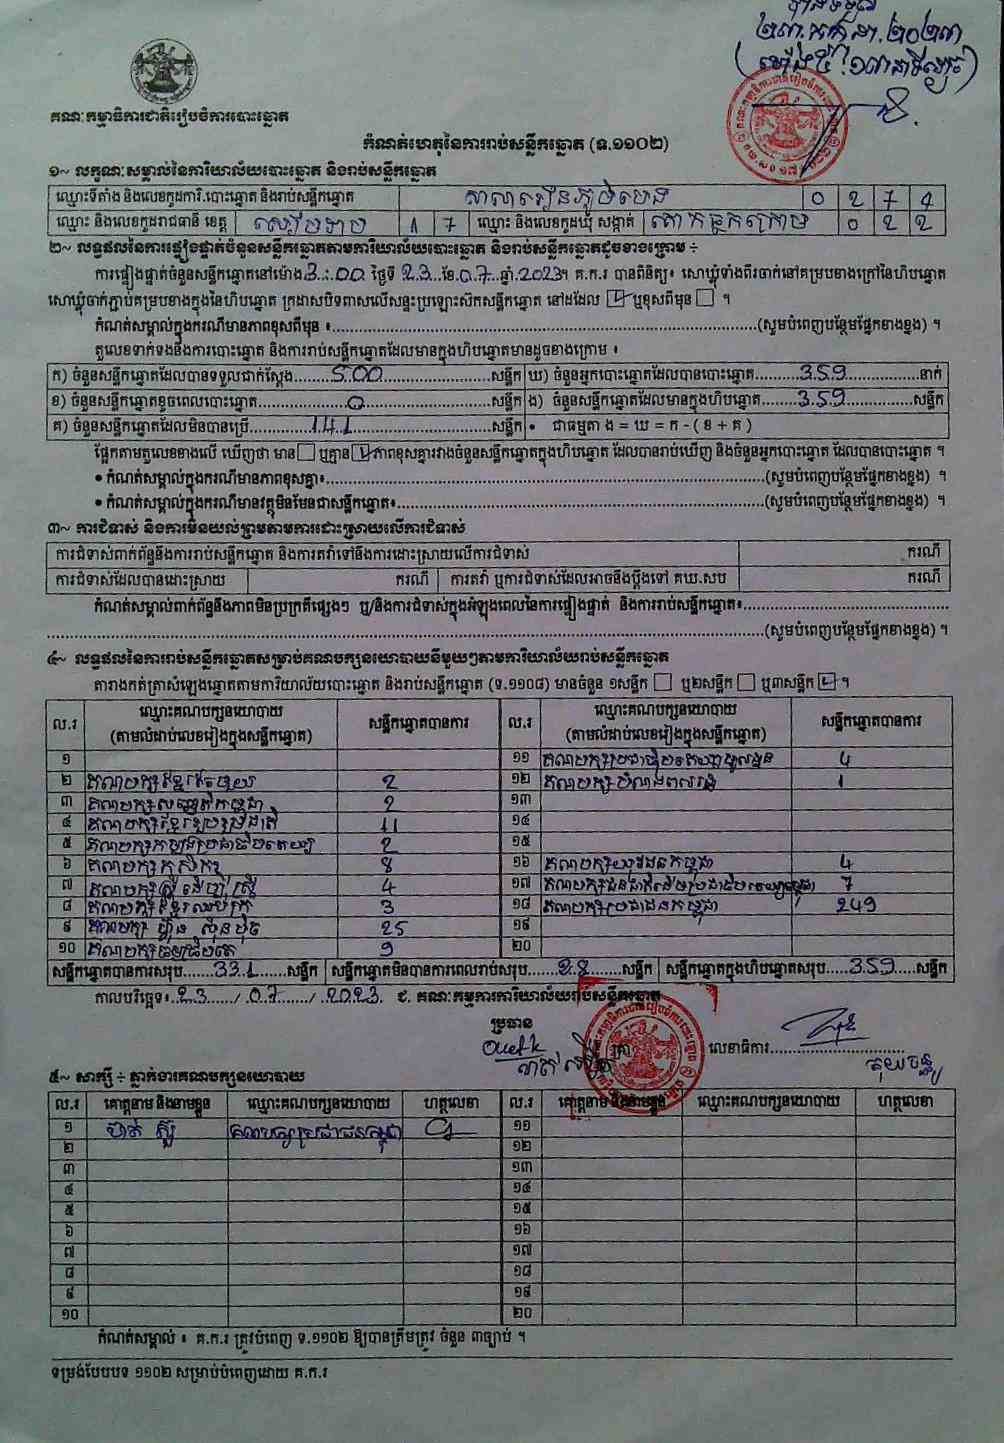 ២៣.កក្កដា.២០២៣
គណៈកម្មាធិការជាតិរៀបចំការបោះឆ្នោត
កំណត់ហេតុនៃការរាប់សន្លឹកឆ្នោត (ទ.១១០២)
១~ លក្ខណៈសម្គាល់នៃការិយាល័យបោះឆ្នោត និងរាប់សន្លឹកឆ្នោត
ឈ្មោះទីតាំង និងលេខកូដការិ.បោះឆ្នោត និងរាប់សន្លឹកឆ្នោត សាលារៀនភូមិ 0 2 7 4
ឈ្មោះ និងលេខកូដរាជធានី ខេត្ត សៀមរាប 1 7 ឈ្មោះ និងលេខកូដឃុំ សង្កាត់ គោកធ្លកក្រោម 0 2 2
២~ លទ្ធផលនៃការផ្ទៀងផ្ទាត់ចំនួនសន្លឹកឆ្នោតតាមការិយាល័យបោះឆ្នោត និងរាប់សន្លឹកឆ្នោតដូចខាងក្រោម ÷
ការផ្ទៀងផ្ទាត់ចំនួនសន្លឹកឆ្នោតនៅម៉ោង 3:00 ថ្ងៃទី 23 ខែ 07 ឆ្នាំ 2023។ គ.ក.រ បានពិនិត្យ៖ សោឃ្លុំទាំងពីរចាក់នៅគម្របខាងក្រៅនៃហិបឆ្នោត
សោឃ្លុំចាក់ភ្ជាប់គម្របខាងក្នុងនៃហិបឆ្នោត ក្រដាសបិទពាសលើសន្ទះប្រឡោះសិកសន្លឹកឆ្នោត នៅដដែល ☑ ឬខុសពីមុន ☐ ។
កំណត់សម្គាល់ក្នុងករណីមានភាពខុសពីមុន ៖..........(សូមបំពេញបន្ថែមផ្នែកខាងខ្នង) ។
តួលេខទាក់ទងនឹងការបោះឆ្នោត និងការរាប់សន្លឹកឆ្នោតដែលមានក្នុងហិបឆ្នោតមានដូចខាងក្រោម ៖
ក) ចំនួនសន្លឹកឆ្នោតដែលបានទទួលជាក់ស្តែង........500........សន្លឹក ឃ) ចំនួនអ្នកបោះឆ្នោតដែលបានបោះឆ្នោត........359........នាក់
ខ) ចំនួនសន្លឹកឆ្នោតខូចពេលបោះឆ្នោត........0........សន្លឹក ង) ចំនួនសន្លឹកឆ្នោតដែលមានក្នុងហិបឆ្នោត........359........សន្លឹក
គ) ចំនួនសន្លឹកឆ្នោតដែលមិនបានប្រើ........141........សន្លឹក • ជាធម្មតា ង = ឃ = ក - ( ខ + គ )
ផ្អែកតាមតួលេខខាងលើ ឃើញថា មាន ☐ ឬគ្មាន ☑ ភាពខុសគ្នារវាងចំនួនសន្លឹកឆ្នោតក្នុងហិបឆ្នោត ដែលបានរាប់ឃើញ និងចំនួនអ្នកបោះឆ្នោត ដែលបានបោះឆ្នោត ។
• កំណត់សម្គាល់ក្នុងករណីមានភាពខុសគ្នា៖..........(សូមបំពេញបន្ថែមផ្នែកខាងខ្នង) ។
• កំណត់សម្គាល់ក្នុងករណីមានវត្ថុមិនមែនជាសន្លឹកឆ្នោត៖..........(សូមបំពេញបន្ថែមផ្នែកខាងខ្នង) ។
៣~ ការជំទាស់ និងការមិនយល់ព្រមតាមការដោះស្រាយលើការជំទាស់
ការជំទាស់ពាក់ព័ន្ធនឹងការរាប់សន្លឹកឆ្នោត និងការតវ៉ាទៅនឹងការដោះស្រាយលើការជំទាស់ ករណី
ការជំទាស់ដែលបានដោះស្រាយ ករណី ការតវ៉ា ឬការជំទាស់ដែលអាចនឹងប្តឹងទៅ គឃ.សប ករណី
កំណត់សម្គាល់ពាក់ព័ន្ធនឹងភាពមិនប្រក្រតីផ្សេងៗ ឬ/និងការជំទាស់ក្នុងអំឡុងពេលនៃការផ្ទៀងផ្ទាត់ និងការរាប់សន្លឹកឆ្នោត៖..........
..........(សូមបំពេញបន្ថែមផ្នែកខាងខ្នង) ។
៤~ លទ្ធផលនៃការរាប់សន្លឹកឆ្នោតសម្រាប់គណបក្សនយោបាយនីមួយៗតាមការិយាល័យរាប់សន្លឹកឆ្នោត
តារាងកត់ត្រាសំឡេងឆ្នោតតាមការិយាល័យបោះឆ្នោត និងរាប់សន្លឹកឆ្នោត (ទ.១១០៨) មានចំនួន ១សន្លឹក ☐ ឬ២សន្លឹក ☐ ឬ៣សន្លឹក ☑ ។
ល.រ ឈ្មោះគណបក្សនយោបាយ សន្លឹកឆ្នោតបានការ ល.រ ឈ្មោះគណបក្សនយោបាយ សន្លឹកឆ្នោតបានការ
(តាមលំដាប់លេខរៀងក្នុងសន្លឹកឆ្នោត) (តាមលំដាប់លេខរៀងក្នុងសន្លឹកឆ្នោត)
១ ១១ គណបក្សប្រជាធិបតេយ្យមូលដ្ឋាន 4
២ គណបក្សខ្មែរ 2 ១២ គណបក្ស 1
៣ គណបក្សសញ្ជាតិកម្ពុជា 2 ១៣
៤ គណបក្សខ្មែររួបរួមជាតិ 11 ១៤
៥ គណបក្សកម្លាំងប្រជាធិបតេយ្យ 2 ១៥
៦ គណបក្សកសិករ 8 ១៦ គណបក្សយុវជនកម្ពុជា 4
៧ គណបក្សស្ត្រីដើម្បីស្ត្រី 4 ១៧ 7
៨ គណបក្សខ្មែរឈប់ក្រ 3 ១៨ គណបក្សប្រជាជនកម្ពុជា 249
៩ គណបក្ស ហ្វ៊ុនស៊ិនប៉ិច 25 ១៩
១០ គណបក្សធម្មាធិបតេយ្យ 9 ២០
សន្លឹកឆ្នោតបានការសរុប........331........សន្លឹក សន្លឹកឆ្នោតមិនបានការពេលរាប់សរុប........28........សន្លឹក សន្លឹកឆ្នោតក្នុងហិបឆ្នោតសរុប........359........សន្លឹក
កាលបរិច្ឆេទ៖ 23 / 07 / 2023 ជ. គណៈកម្មការការិយាល័យរាប់សន្លឹកឆ្នោត
ប្រធាន
លេខាធិការ..........
៥~ សាក្សី ÷ ភ្នាក់ងារគណបក្សនយោបាយ
ល.រ គោត្តនាម និងនាមខ្លួន ឈ្មោះគណបក្សនយោបាយ ហត្ថលេខា ល.រ គោត្តនាម និងនាមខ្លួន ឈ្មោះគណបក្សនយោបាយ ហត្ថលេខា
១ គណបក្សប្រជាជនកម្ពុជា ១១
២ ១២
៣ ១៣
៤ ១៤
៥ ១៥
៦ ១៦
៧ ១៧
៨ ១៨
៩ ១៩
១០ ២០
កំណត់សម្គាល់ ៖ គ.ក.រ ត្រូវបំពេញ ទ.១១០២ ឱ្យបានត្រឹមត្រូវ ចំនួន ៣ច្បាប់ ។
ទម្រង់បែបបទ ១១០២ សម្រាប់បំពេញដោយ គ.ក.រ